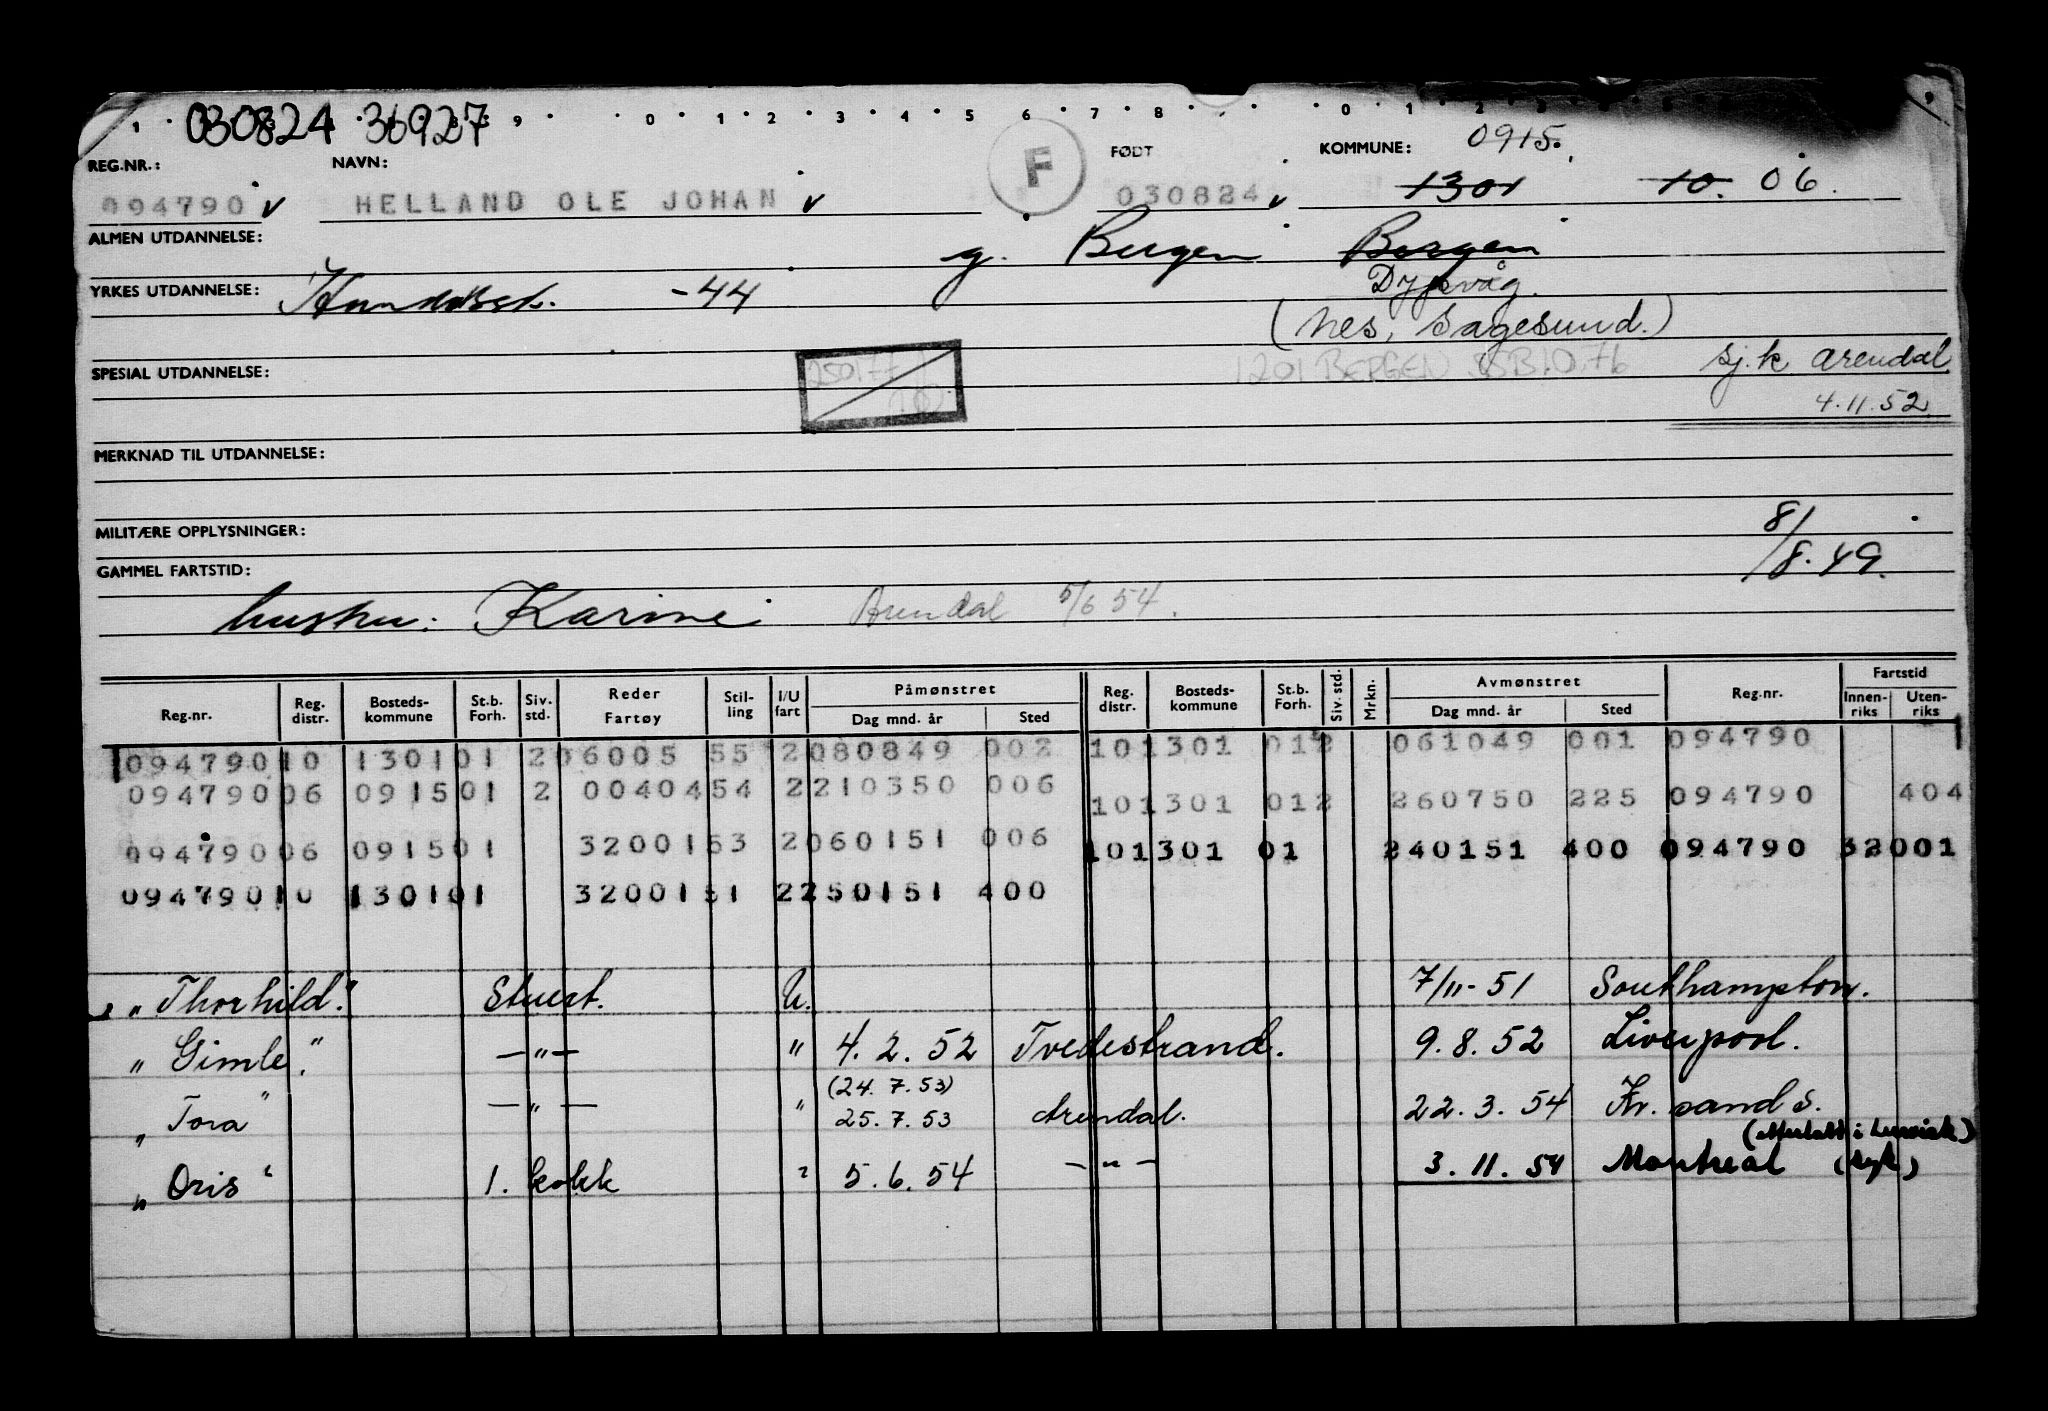 030824 36927
1 9 0 1 2 3 4 5 6 7 8 0 1 2 3 9
REG.NR.: NAVN: F FØDT KOMMUNE: 0915.
094790 v HELLAND OLE JOHAN v 030824 v 1301 10. 06.
ALMEN UTDANNELSE: g. Bergen Bergen
YRKES UTDANNELSE: Handelssk. -44 Dypvåg.
(Nes, Sagesund.)
SPESIAL UTDANNELSE: 250177 1201 BERGEN SSB10.76 Sj.k Arendal
4.11.52
MERKNAD TIL UTDANNELSE:
MILITÆRE OPPLYSNINGER: 8/
GAMMEL FARTSTID: /8.49.
hustru: Karine Arendal 5/6 54.
Reg.nr. Reg. distr. Bosteds-kommune St.b. Forh. Siv. std. Reder Fartøy Stil-ling I/U fart Påmønstret Dag mnd. år Sted Reg. distr. Bosteds-kommune St.b. Forh. Siv. std. Mrkn. Avmønstret Dag mnd. år Sted Reg.nr. Fartstid Innen-riks Uten-riks
094790 10 1301 01 2 06005 55 2 080849 002 10 1301 01 2 061049 001 094790 1
094790 06 0915 01 2 00404 54 2 210350 006 10 1301 01 2 260750 225 094790 404
094790 06 0915 01 32001 53 2 060151 006 10 1301 01 240151 400 094790 32001
094790 10 1301 01 32001 51 2 250151 400
"Thorhild." Stuert. U. 7/11-51 Southampton.
"Gimle." —"— " 4.2.52 Tvedestrand. 9.8.52 Liverpool.
(24.7.53)
"Tora" —"— " 25.7.53 Arendal. 22.3.54 Kr.sand S.
"Oris" 1. kokk " 5.6.54 —"— 3.11.54 Montreal (syk)